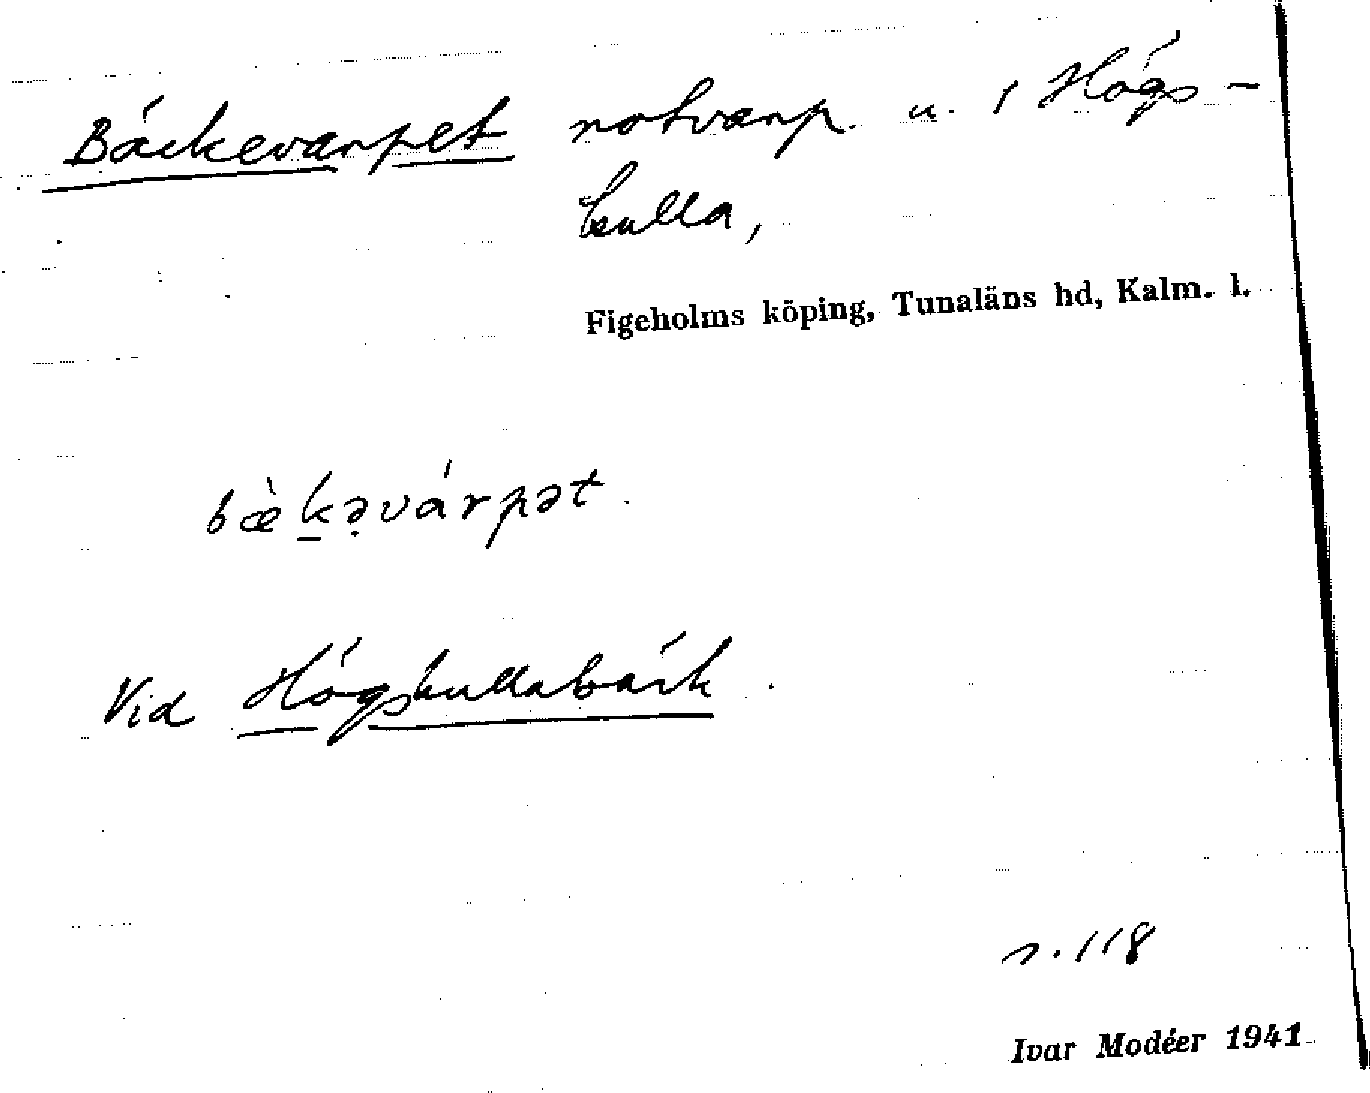 Bäckevarpet notvarp. u. i Högs-
kulla,
Figeholms köping, Tunaläns hd, Kalm. l.
bæ̀ḵə̣várpət.
Vid Högskullabäck.
s. 118
Ivar Modéer 1941